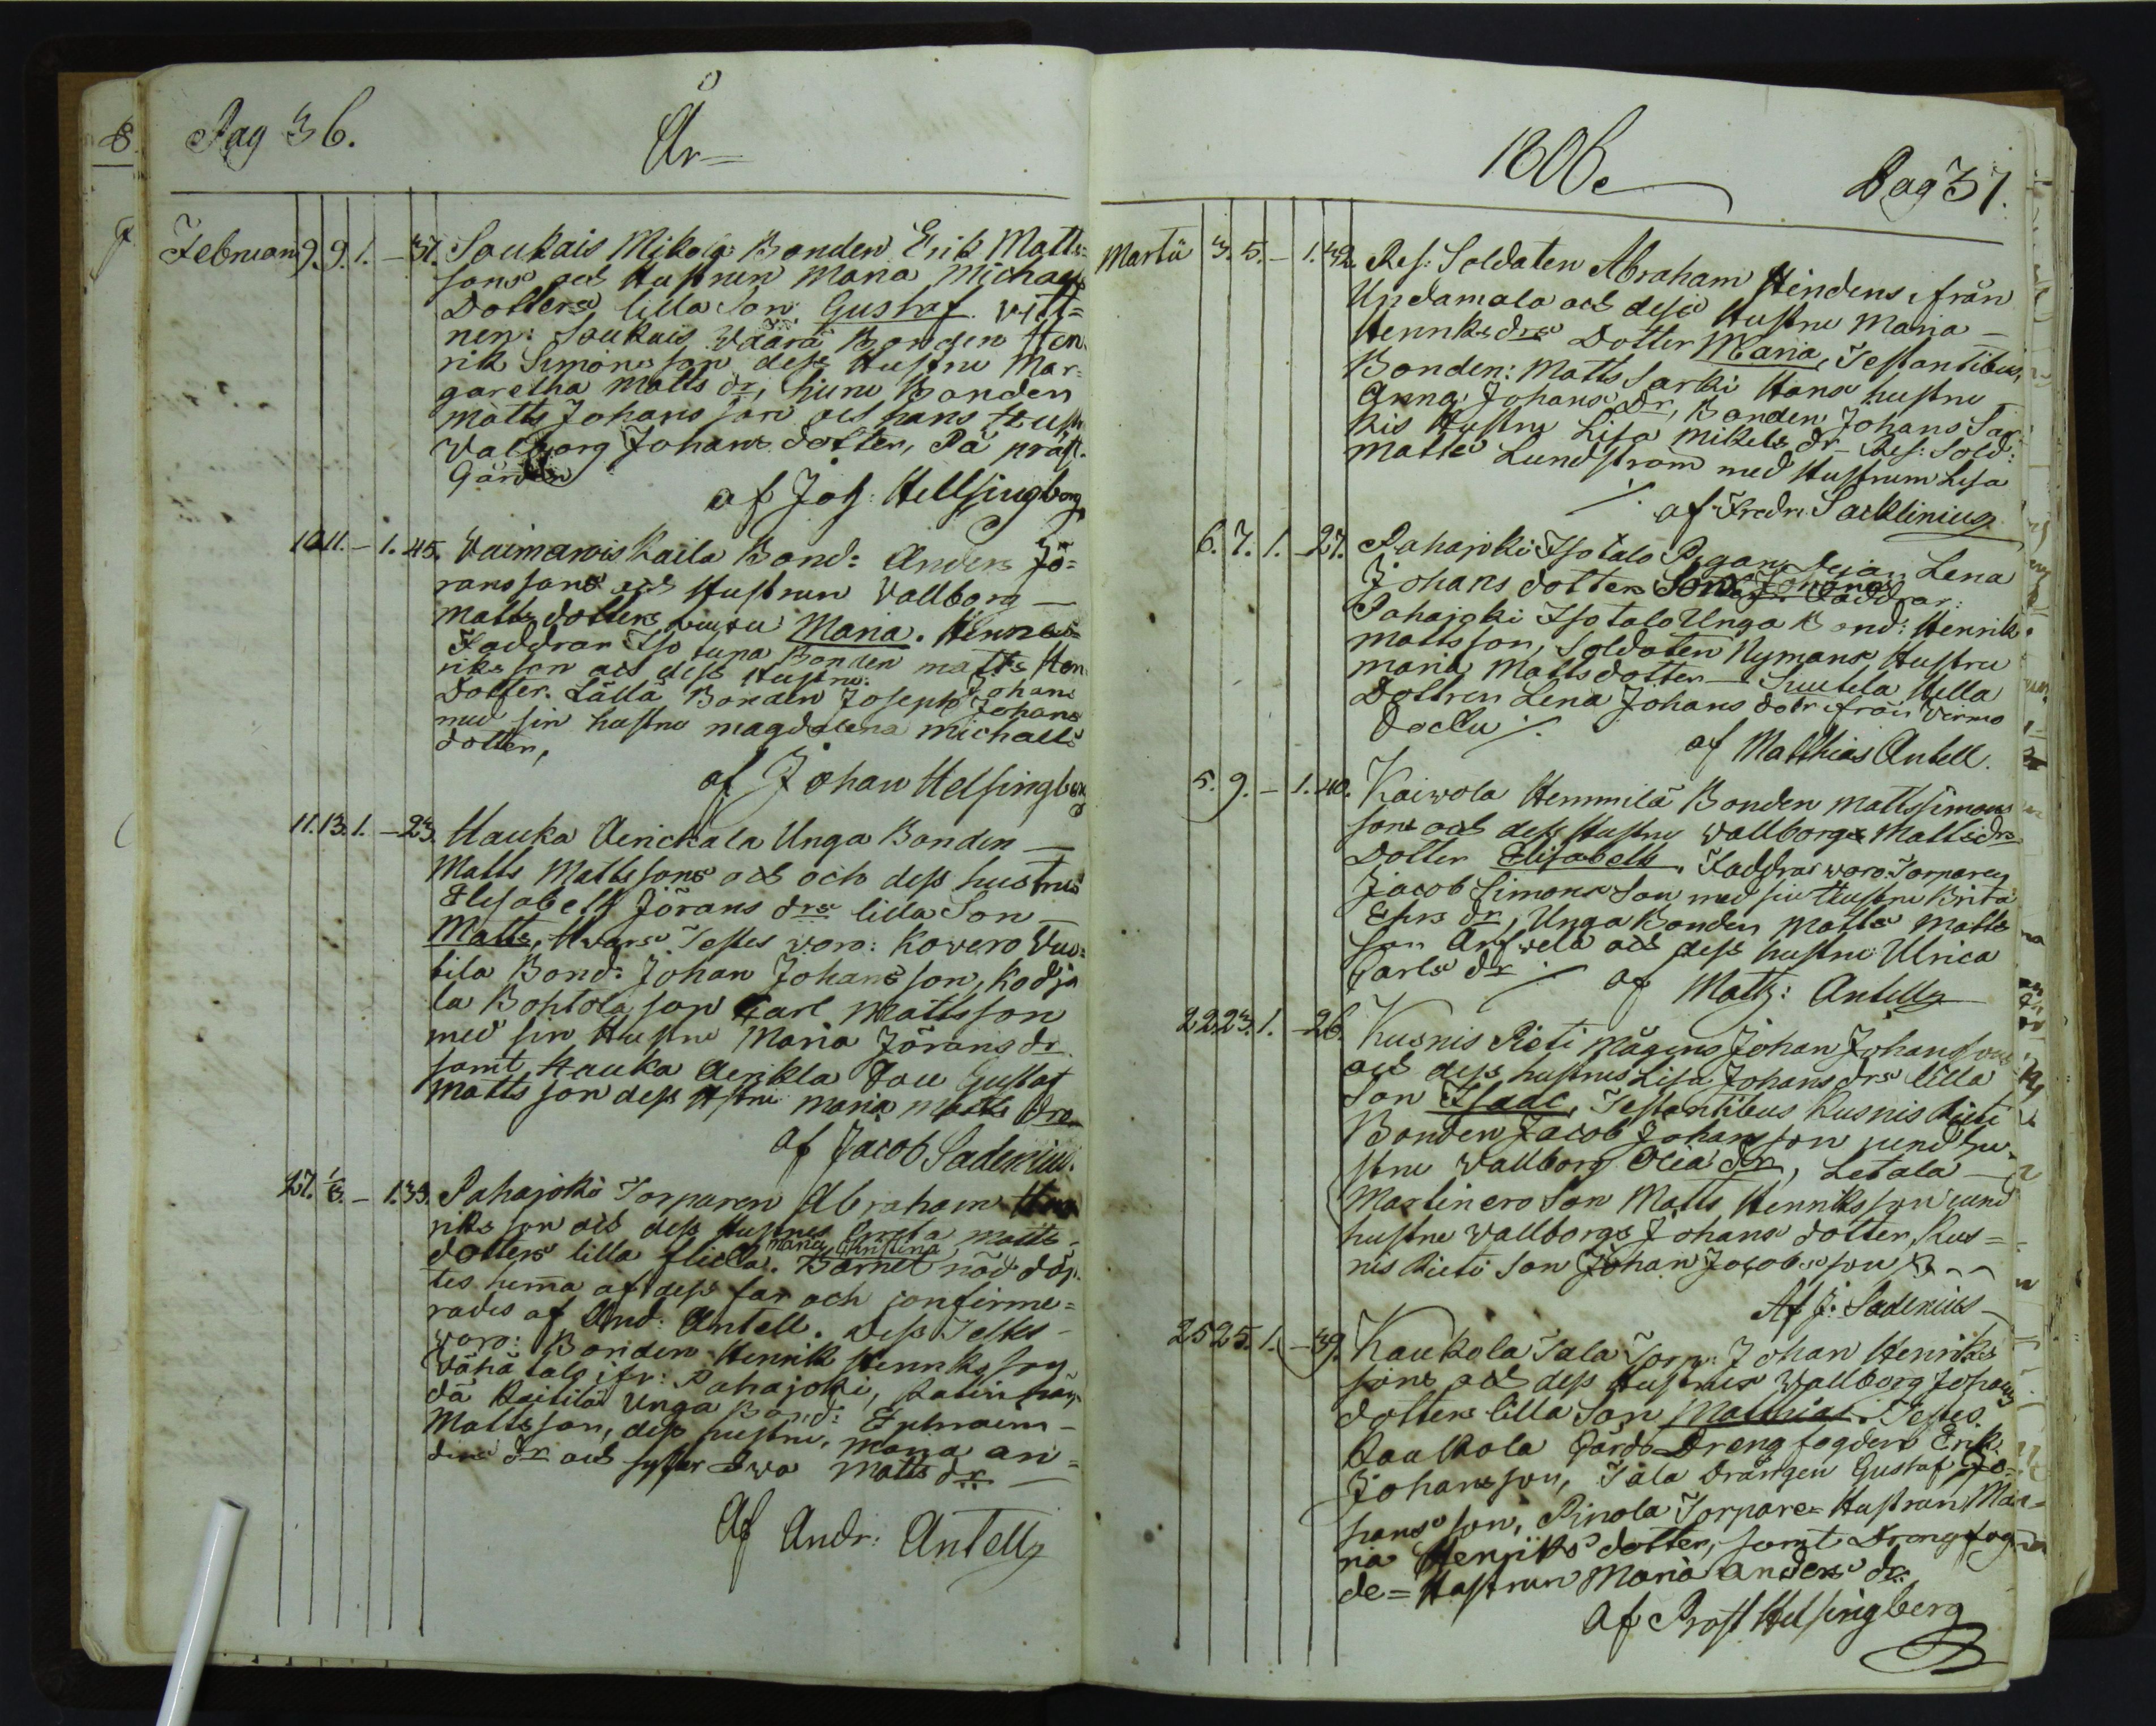 Pag 36.
År=
Februarii 9. 9. 1. – 37. Saukais Mikola Bonden Erik Matts=
sons och Hustrun Maria Michaels
Dotters lilla Son Gustaf. Vitt=
nen: Saukais Väärä Bonden Hen
rik Simons son dess Hustru Mar=
garetha Matts dr, Bonden
Matts Johans son och hans Hustr
Valborg Johans dotter, På präst
Gården
af Joh: Hellsingberg
10 11. – 1. 45. Vaimarois Kaila Bond: Anders Jö=
rans sons och Hustrun Vallborg –
Matts dotters Maria. Hennes
Faddrar Iso tupa Bonden Matts Hen
riks son och dess Hustru: Johans
Dotter. Lällä Bonden Joseph Johans
med sin hustru Magdalena Michaels
dotter,
af Johan Helsingberg
11. 13. 1. – 23. Hauka Aerickala Unga Bonden –
Matts Mattssons och och dess hustrus
Elisabeth Jörans drs lilla Son –
Matts, Hvars Testes voro: Kovero
tila Bond: Johan Johans son, Kodja
la son Carl Mattsson
med sin Hustru Maria Jörans dr
samt Hauka Aerikla Gustaf
Matts son dess Hstru Maria Matts dr
af Jacob Sadenius.
27. 1/3. – 1. 33. Pahajoki Torparen Abraham Hen
riks son och dess Hustrus Greta Matts
dotters lilla flicka. Maria Christina Barnet nöd döp
tes hema af dess far och confirme=
rades af And: Antell. Dess Testes
voro: Bonden Henrik Henriks son
Vähä talo ifr: Pahajoki,
Unga Bond: Ephraim –
Matts son, dess hustru, Maria An=
ders dr och syster Eva Matts dr –
Af Andr: Antell
1806.
Pag 37.
Martii 3. 5. – 1. 42. Res: Soldaten Abraham Hindens ifrån
Updamala och dess Hustru Maria –
Henriks drs Dotter Maria, Testantibus,
Bonden: Matts Sarki Hans hustru
Anna Johans dr, Bonden Johans Sar
kis Hustru Lisa Mikels dr – Res: Sold:
Matts Lundstrom med Hustrum Lisa
/. af Fredr: Sacklinius
6. 7. 1. – 27. Pahajoki Isotalo Pigans Lena
Johans dotters Son Johan Faddrar:
Pahajoki Isotalo Unga Bond: Henrik
Mattsson, Soldaten Nymans Hustru
Maria Mattsdotter – Suutela Hella
Dottren Lena Johans dotr ifrån Virmo
Socku /.
af Matthias Antell.
5. 9. – 1. 40. Kaivola Hemmilä Bonden Matts Simons
sons och dess Hustru Vallborgs Matts drs
Dotter Elisabeth. Faddrar woro: Torparen
Jacob Simons Son med sin Hustru Brita
Eskrs dr, Unga Bonden Matts Matts
son Arfvela och dess hustru Ulrica
Carls dr /. af Matth: Antell
22. 23. 1. – 26. Kusnis Pieti Mågens Johan Johanssons
och dess hustrus Lisa Johans drs lilla
Son Isaac, Testantibus Kusnis Pieti
Bonden Jacob Johans son jemte hu
stru Vallborg dr, Letala –
Martinero Son Matts Henriksson jemte
hustru Vallborgs Johans dotter, Kus=
nis Pieti Son Johan Jacobsson
Af J: Sadenius
25 25. 1. – 39. Kaukola Tala Torp: Johan Henriks
sons och dess Hustrus Vallborg Johans
dotters lilla Son Matthias. Testes.
Kaukola Gårds Dreng fogden Erik
Johansson, Tala Drängen Gustaf Jo=
hans son, Pinola Torpare= Hustrun Ma=
ria Henriks dotter, samt Drengfog
de= Hustrun Maria Anders dr.
Af Prost Helsingberg